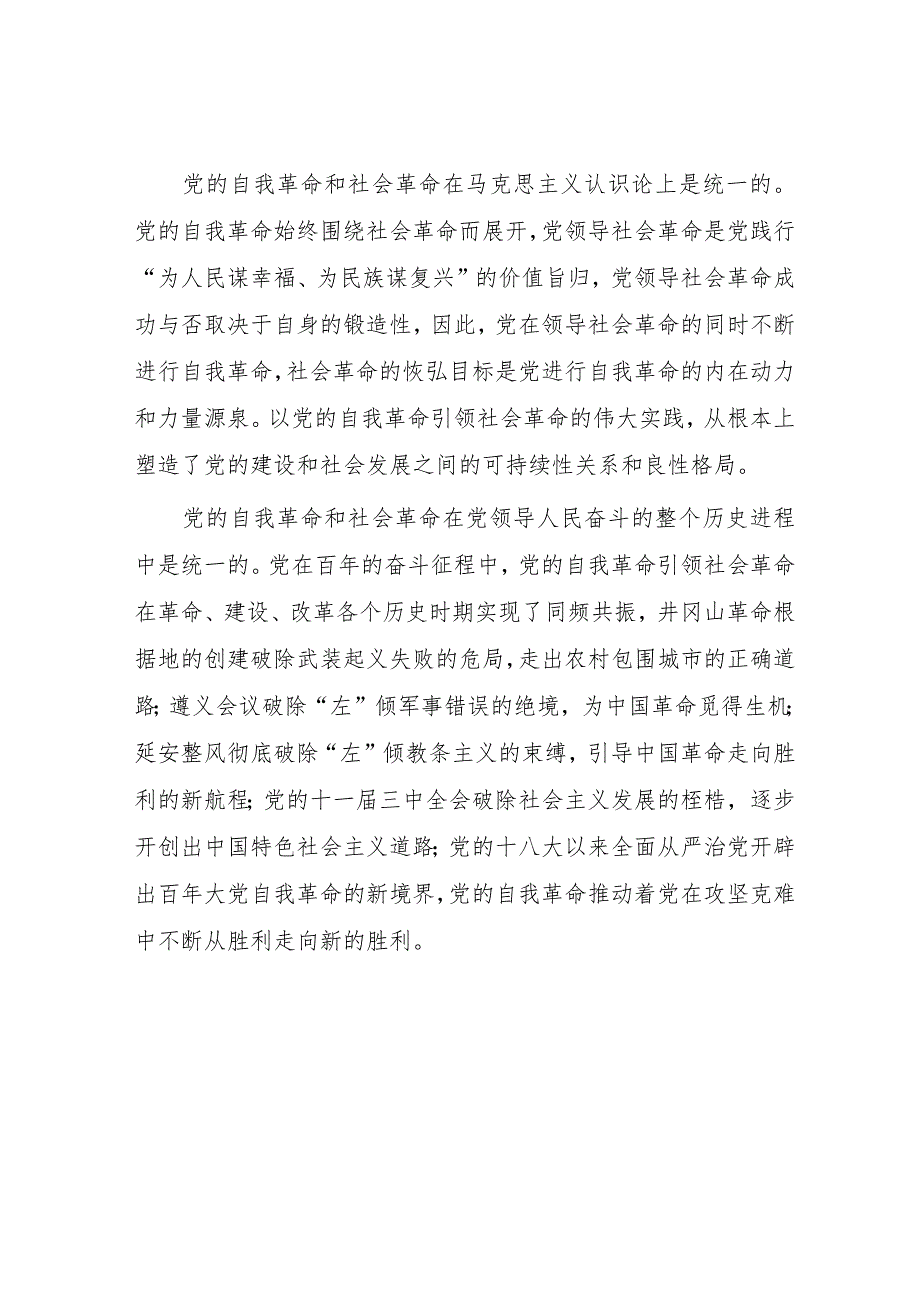 党的自我革命和社会革命在马克思主义认识论上是统一的。
党的自我革命始终围绕社会革命而展开,党领导社会革命是党践行
“为人民谋幸福、为民族谋复兴”的价值旨归，党领导社会革命成
功与否取决于自身的锻造性，因此，党在领导社会革命的同时不断
进行自我革命,社会革命的恢弘目标是党进行自我革命的内在动力
和力量源泉。以党的自我革命引领社会革命的伟大实践，从根本上
塑造了党的建设和社会发展之间的可持续性关系和良性格局。
党的自我革命和社会革命在党领导人民奋斗的整个历史进程
中是统一的。党在百年的奋斗征程中，党的自我革命引领社会革命
在革命、建设、改革各个历史时期实现了同频共振，井冈山革命根
据地的创建破除武装起义失败的危局,走出农村包围城市的正确道
路;遵义会议破除“左”倾军事错误的绝境，为中国革命觅得生机;
延安整风彻底破除“左”倾教条主义的束缚，引导中国革命走向胜
利的新航程;党的十一届三中全会破除社会主义发展的桎梏，逐步
开创出中国特色社会主义道路;党的十八大以来全面从严治党开辟
出百年大党自我革命的新境界,党的自我革命推动着党在攻坚克难
中不断从胜利走向新的胜利。